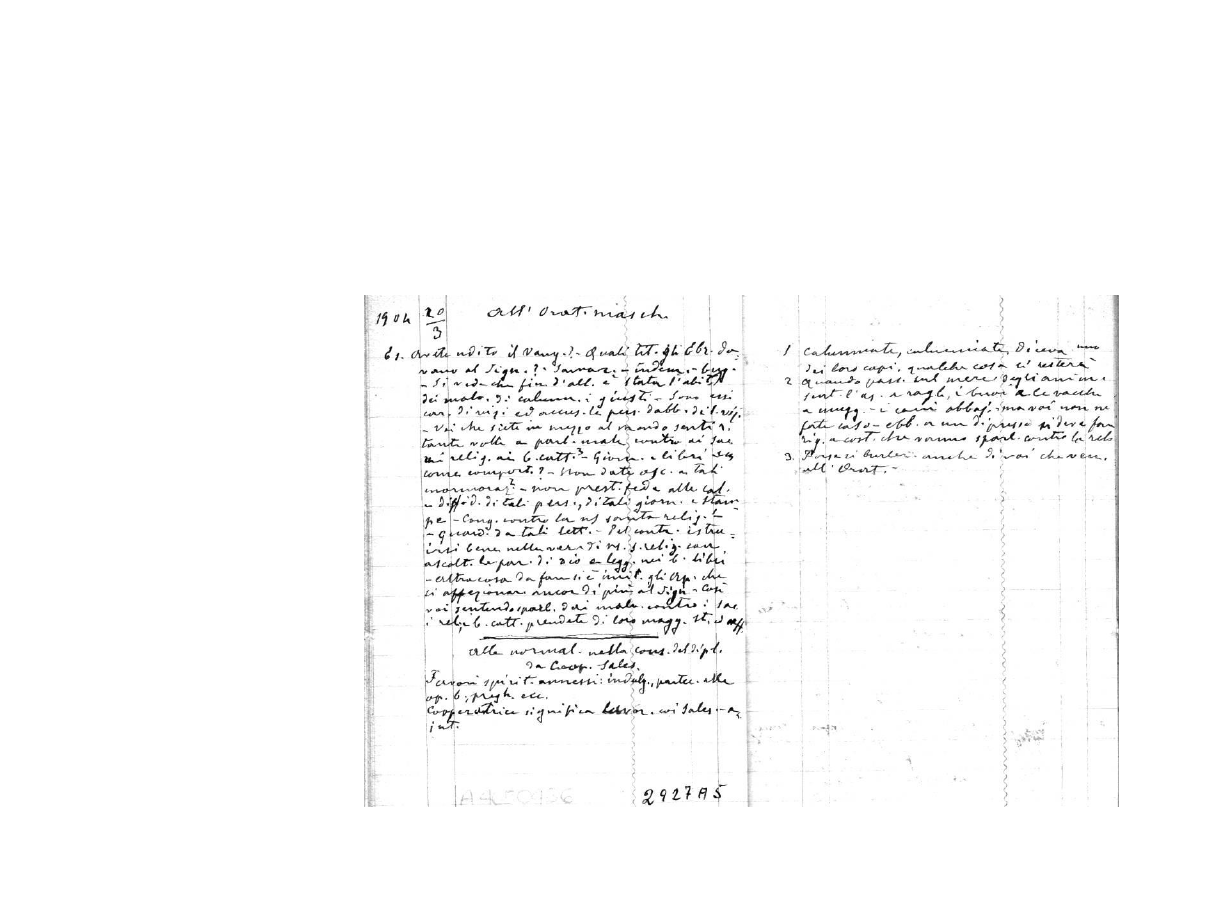 1904 20/3 All' Orat. masch.
Es. Avete udito il Vang.? - Quali tit. gli Ebr. da-
vano al Sign.? - Samar. - indem. - bugg.
- Si vede che fin d'all. è stata l'abit.
dei malv. di calunn. i giusti - Sono essi
car. di vizi ed accus. le pers. dabb. dei l. vizi
- Voi che siete in mezzo al mondo sentir.
tante volte a parl. male contro ai sac.
ai relig. ai b. catt. - Giorn. e libri
come comport.? - Non date asc. a tali
mormoraz. - non prest. fede alle cal.
- diffid. di tali pers., di tali giorn. e stam
pe - Cong. contro la ns santa relig.
- guard. da tali lett. - Del contr. istru=
irsi bene nelle ver. di ns. s. relig. con
ascolt. la par. di Dio e legg. nei b. libri
- altra cosa da farsi è imit. gli Ap. che
si affezionar. ancor di più al Sign. - Così
voi sentendo parl. dai malv. contro i sac.
i relig. b. catt. prendete di loro magg. st. ed aff.
Alle normal. nella cons. del dipl.
da Coop. Sales.
Favori spirit. annessi: indulg., partec. alle
op. b., pregh. ecc.
Cooperatrice significa lavor. coi Sales. - a
iut.
2927A5
1 Calunniate, calunniate, diceva uno
dei loro capi, qualche cosa ci resterà
2 Quando pass. sul merc. degli anim.
sent. l'as. a ragl., i buoi e le vacche
a mugg. - i cani abbai. ma voi non ne
fate caso - ebb. a un dipresso si deve far
rig. a cost. che vanno sparl. contro la rel.
3. Forse ci burler. anche di voi che ven.
all' Orat. -